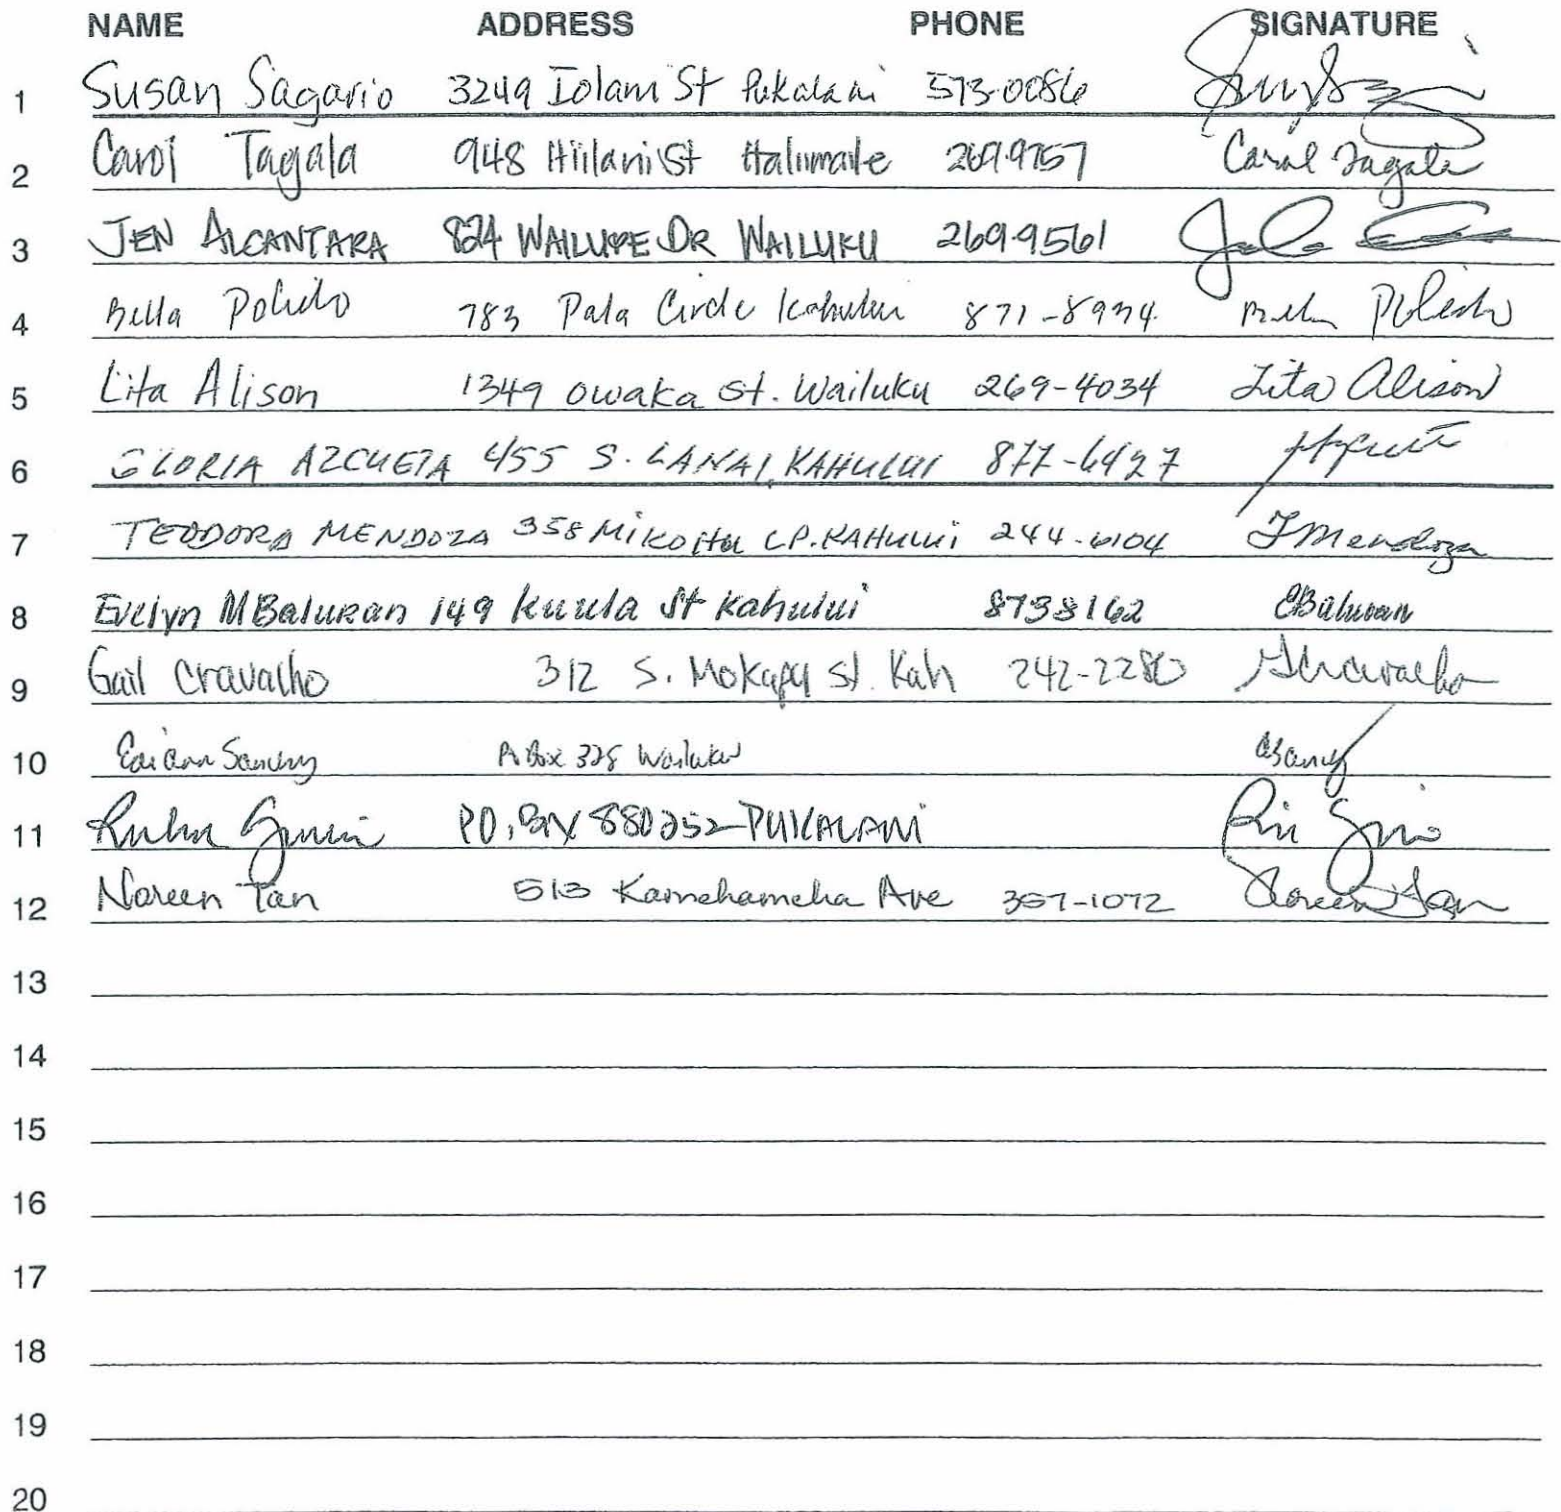 NAME ADDRESS PHONE SIGNATURE
1 Susan Sagario 3249 Iolani St Pukalani 573-0086
2 Carol Tagala 948 Hiilani St Haliimaile 269.9757 Carol Tagala
3 JEN ALCANTARA 824 WAILUPE DR WAILUKU 269.9561
4 Bella Polido 783 Pala Circle Kahului 871-8934 Polido
5 Lita Alison 1349 Owaka St. Wailuku 269-4034 Lita Alison
6 GLORIA AZCUETA 455 S. LANAI, KAHULUI 877-6427
7 TEODORA MENDOZA 358 MIKOHU LP. KAHULUI 244-6104 TMendoza
8 Evelyn M Baluran 149 Kuula St Kahului 8738162 EBaluran
9 Gail Cravalho 312 S. Mokapu St. Kah 242-2280 GCravalho
10 328 Wailuku
11 PO. BOX 880252 PUKALANI
12 Noreen Tan 513 Kamehameha Ave 357-1072 Noreen Tan
13
14
15
16
17
18
19
20